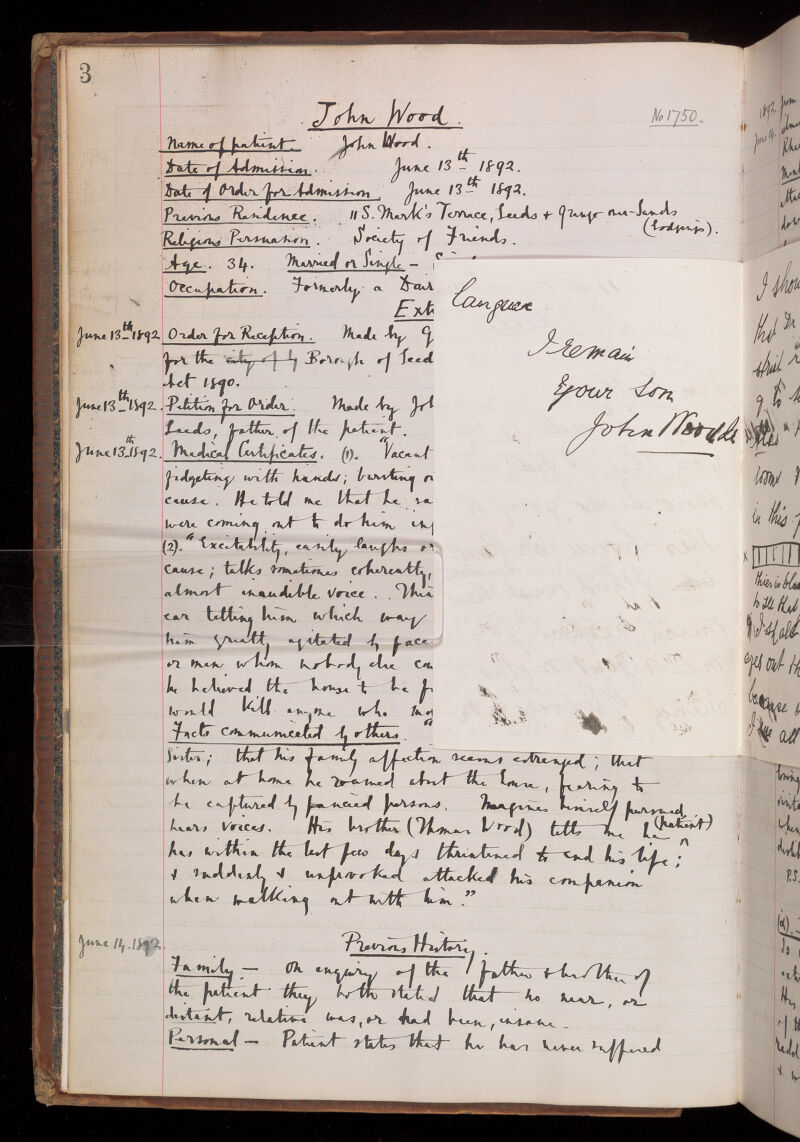 3
John Wood.
No 1750.
Name of patient. John Wood.
Date of Admission. June 13th 1892.
Date of Order for Admission June 13th 1892.
Previous Residence. 11 S. Mark's Terrace, Leeds &
(Lodgings).
Religious Persuasion. Society of Friends.
Age. 34. Married or Single –
Occupation. Formerly a Dair
Ext
June 13th 1892 Order for Reception. Made by G
for the city of Borough of Leed
Act 1890.
June 13th 1892. Petition for Order. Made by Joh
Leeds, father of the patient.
June 13th 1892. Medical Certificates. (1). "Vacant
fidgeting with hands; bursting o
cause. He told me that he sa
were coming out to do him inj
(2). "Excitability, easily laughs o
cause; talks sometimes coherently,
almost inaudible voice. This
ear telling him which way
him greatly agitated by face
or men whom nobody else cou
he believed the house to be f
would kill anyone who mo
Facts communicated by others.
Sister; that his family affection seems estranged; that
when at home he roamed about the house, fearing to
be captured by fancied persons. Imagines himself pursued,
hears voices. His brother (Thomas Wood) tells me he (patient)
has within the last few days threatened to end his life;
& suddenly & unprovoked attacked his companion
when walking out with him."
June 14. 1892. Previous History.
Family – On enquiry of the father & brother of
the patient they both stated that no near, or
distant, relative was, or had been, insane.
Personal – Patient states that he has never suffered
I remain
your son
John Wood
1892.
June 14.
I shou
that Dr
g to
rooms
in this p
x
this is bla
to see that
eyes out
because
I see all
P.S.